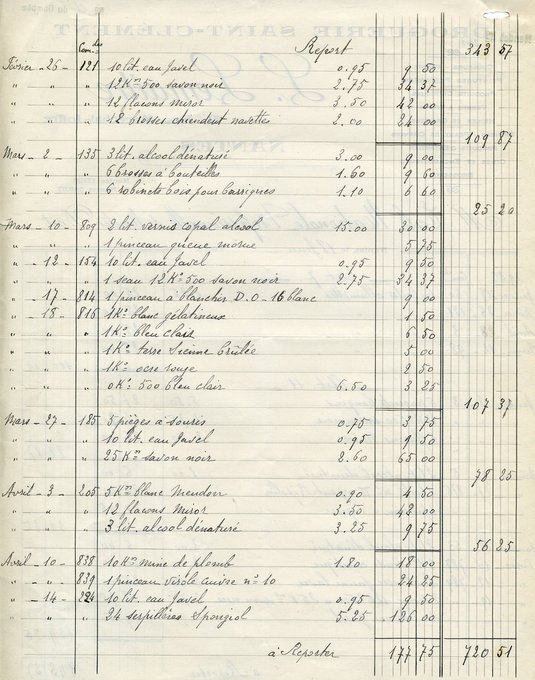 Com. des
Report 343 57
Février - 26 - 121 10 lit. eau Javel 0.95 9 50
" " " 12 Kos 500 savon noir 2.75 34 37
" " " 12 flacons Miror 3.50 42 00
" " " 12 brosses chiendent navettes 2.00 24 00
109 87
Mars - 2 - 135 3 lit. alcool dénaturé 3.00 9 00
" " " 6 brosses à bouteilles 1.60 9 60
" " " 6 robinets bois pour barriques 1.10 6 60
25 20
Mars - 10 - 809 2 lit. vernis copal alcool 15.00 30 00
" " " 1 pinceau queue morue 5 75
" - 12 - 154 10 lit. eau Javel 0.95 9 50
" " " 1 seau 12 Ko 500 savon noir 2.75 34 37
" - 17 - 814 1 pinceau à blanchir D.O - 16 blanc 9 00
" - 18 - 816 1 Ko blanc gélatineux 1 50
" " " 1 Ko bleu clair 6 50
" " " 1 Ko terre Sienne brûlée 5 00
" " " 1 Ko ocre rouge 2 50
" " " 0 Ko 500 bleu clair 6.50 3 25
107 37
Mars - 27 - 185 5 pièges à souris 0.75 3 75
" " " 10 lit. eau Javel 0.95 9 50
" " " 25 Kos savon noir 2.60 65 00
78 25
Avril - 3 - 205 5 Kos blanc Meudon 0.90 4 50
" " " 12 flacons Miror 3.50 42 00
" " " 3 lit. alcool dénaturé 3.25 9 75
56 25
Avril - 10 - 838 10 Kos mine de plomb 1.80 18 00
" " 839 1 pinceau virole cuivre n° 10 24 25
" - 14 - 224 10 lit. eau Javel 0.95 9 50
" " " 24 serpillères Spongiol 5.25 126 00
à Reporter 177 75 720 51